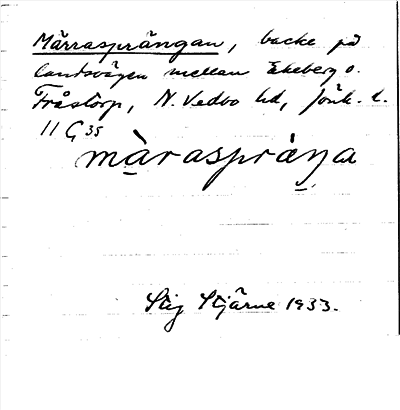 Märrasprängan, backe på
landsvägen mellan Ekeberg o.
Fråstorp, N. Vedbo hd, Jönk. l.
11 G 35
màraspràŋa
Stig Stjärne 1933.